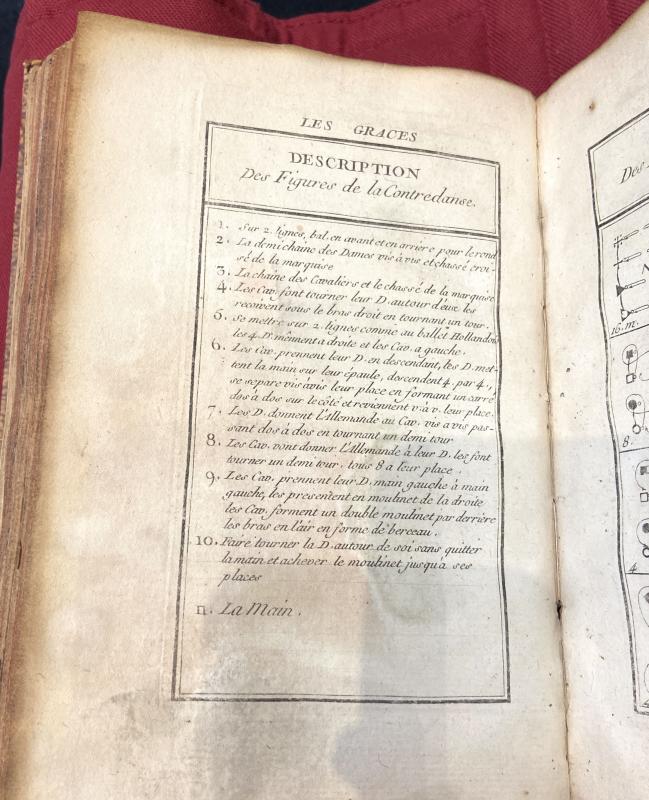 LES GRACES
DESCRIPTION
Des Figures de la Contredanse.
1. Sur 2. lignes, bal. en avant et en arrière pour le rond
2. La demi chaine des Dames vis à vis et chassé croi-
sé de la marquise
3. La chaine des Cavaliers et le chassé de la marquise
4. Les Cav. font tourner leur D. autour d'eux les
recoivent sous le bras droit en tournant un tour.
5. Se mettre sur 2. lignes comme au ballet Hollandois
les 4. D. mènnent a droite et les Cav. a gauche.
6. Les Cav. prennent leur D. en descendant, les D. met-
tent la main sur leur épaule, descendent 4. par 4.,
se separe vis avis leur place en formant un carré
dos à dos sur le côté et reviennent v. à v. leur place.
7. Les D. donnent L'Allemande au Cav. vis a vis pas-
sant dos à dos en tournant un demi tour
8. Les Cav. vont donner L'Allemande à leur D. les font
tourner un demi tour, tous 8 a leur place.
9. Les Cav. prennent leur D. main gauche à main
gauche, les presentent en moulinet de la droite
les Cav. forment un double moulinet par derriere
les bras en l'air en forme de berceau.
10. Faire tourner la D. autour de soi sans quitter
la main et achever le moulinet jusqu a ses
places
11. La Main.
Des
16. m.
8.
4